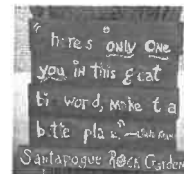 "heres only one
you in this great
ti word, make t a
bette place."
Santapogue Rock Garden